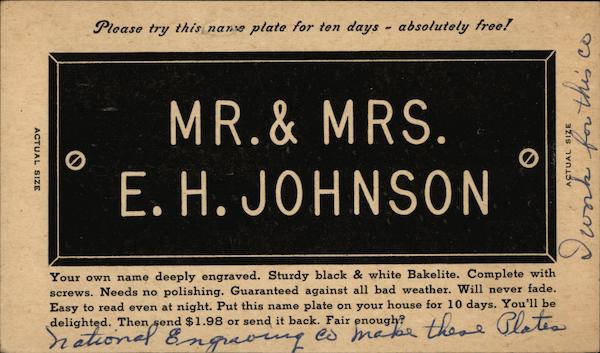 Please try this name plate for ten days - absolutely free!
ACTUAL SIZE
MR. & MRS.
E. H. JOHNSON
ACTUAL SIZE
I work for this Co
Your own name deeply engraved. Sturdy black & white Bakelite. Complete with
screws. Needs no polishing. Guaranteed against all bad weather. Will never fade.
Easy to read even at night. Put this name plate on your house for 10 days. You'll be
delighted. Then send $1.98 or send it back. Fair enough?
National Engraving Co make these Plates